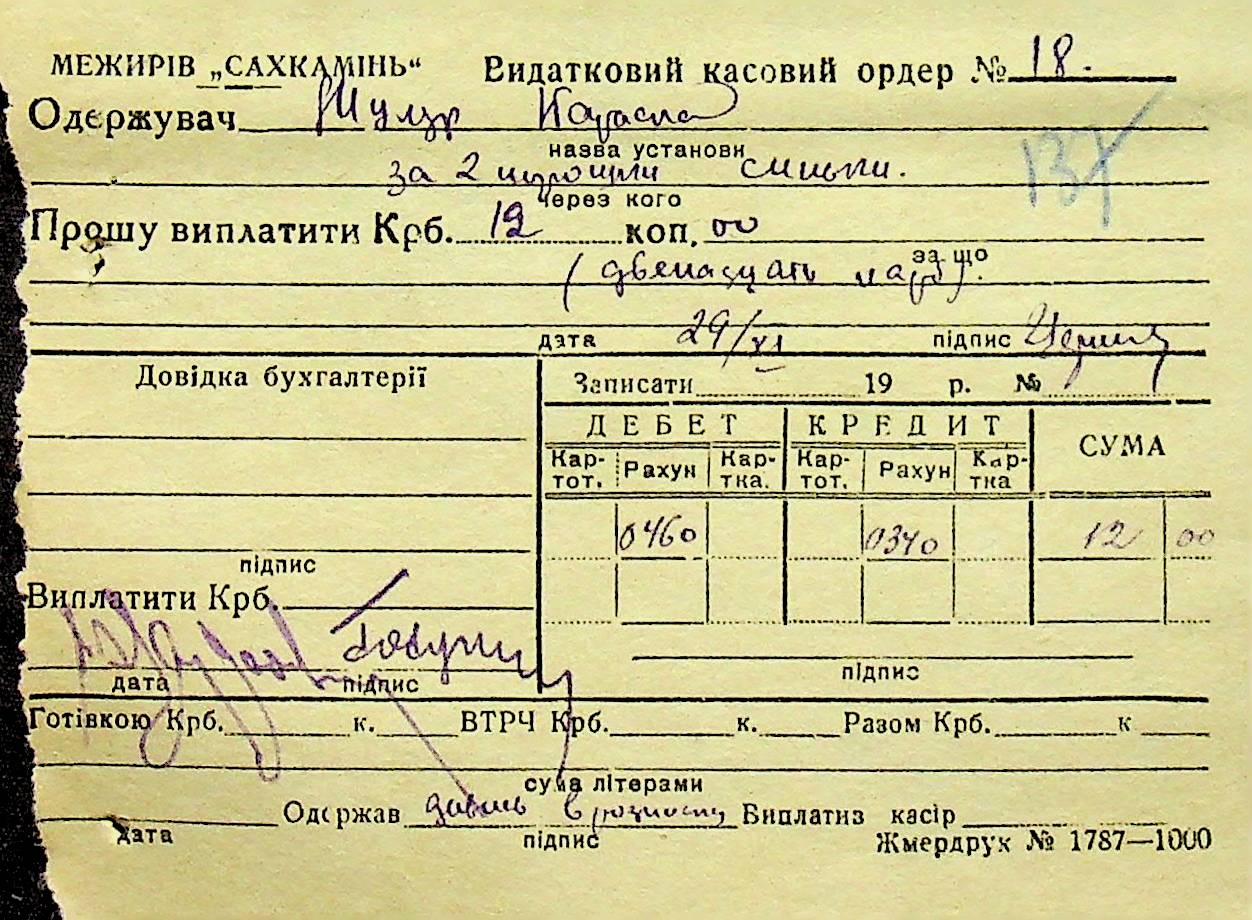 МЕЖИРІВ „САХКАМІНЬ“ Видатковий касовий ордер № 18.
Одержувач
назва установи
за 2
через кого
137
Прошу виплатити Крб. 12 коп. 00
за що
(двенадцать карб).
дата 29/XI підпис
Довідка бухгалтерії
Записати 19 р. №
ДЕБЕТ КРЕДИТ СУМА
Кар-тот. Рахун Кар-тка. Кар-тот. Рахун Кар-тка
0460 0340 12 00
підпис
Виплатити Крб.
дата підпис
підпис
Готівкою Крб. к. ВТРЧ Крб. к. Разом Крб. к
сума літерами
Одержав Виплатив касір
дата підпис
Жмердрук № 1787—1000